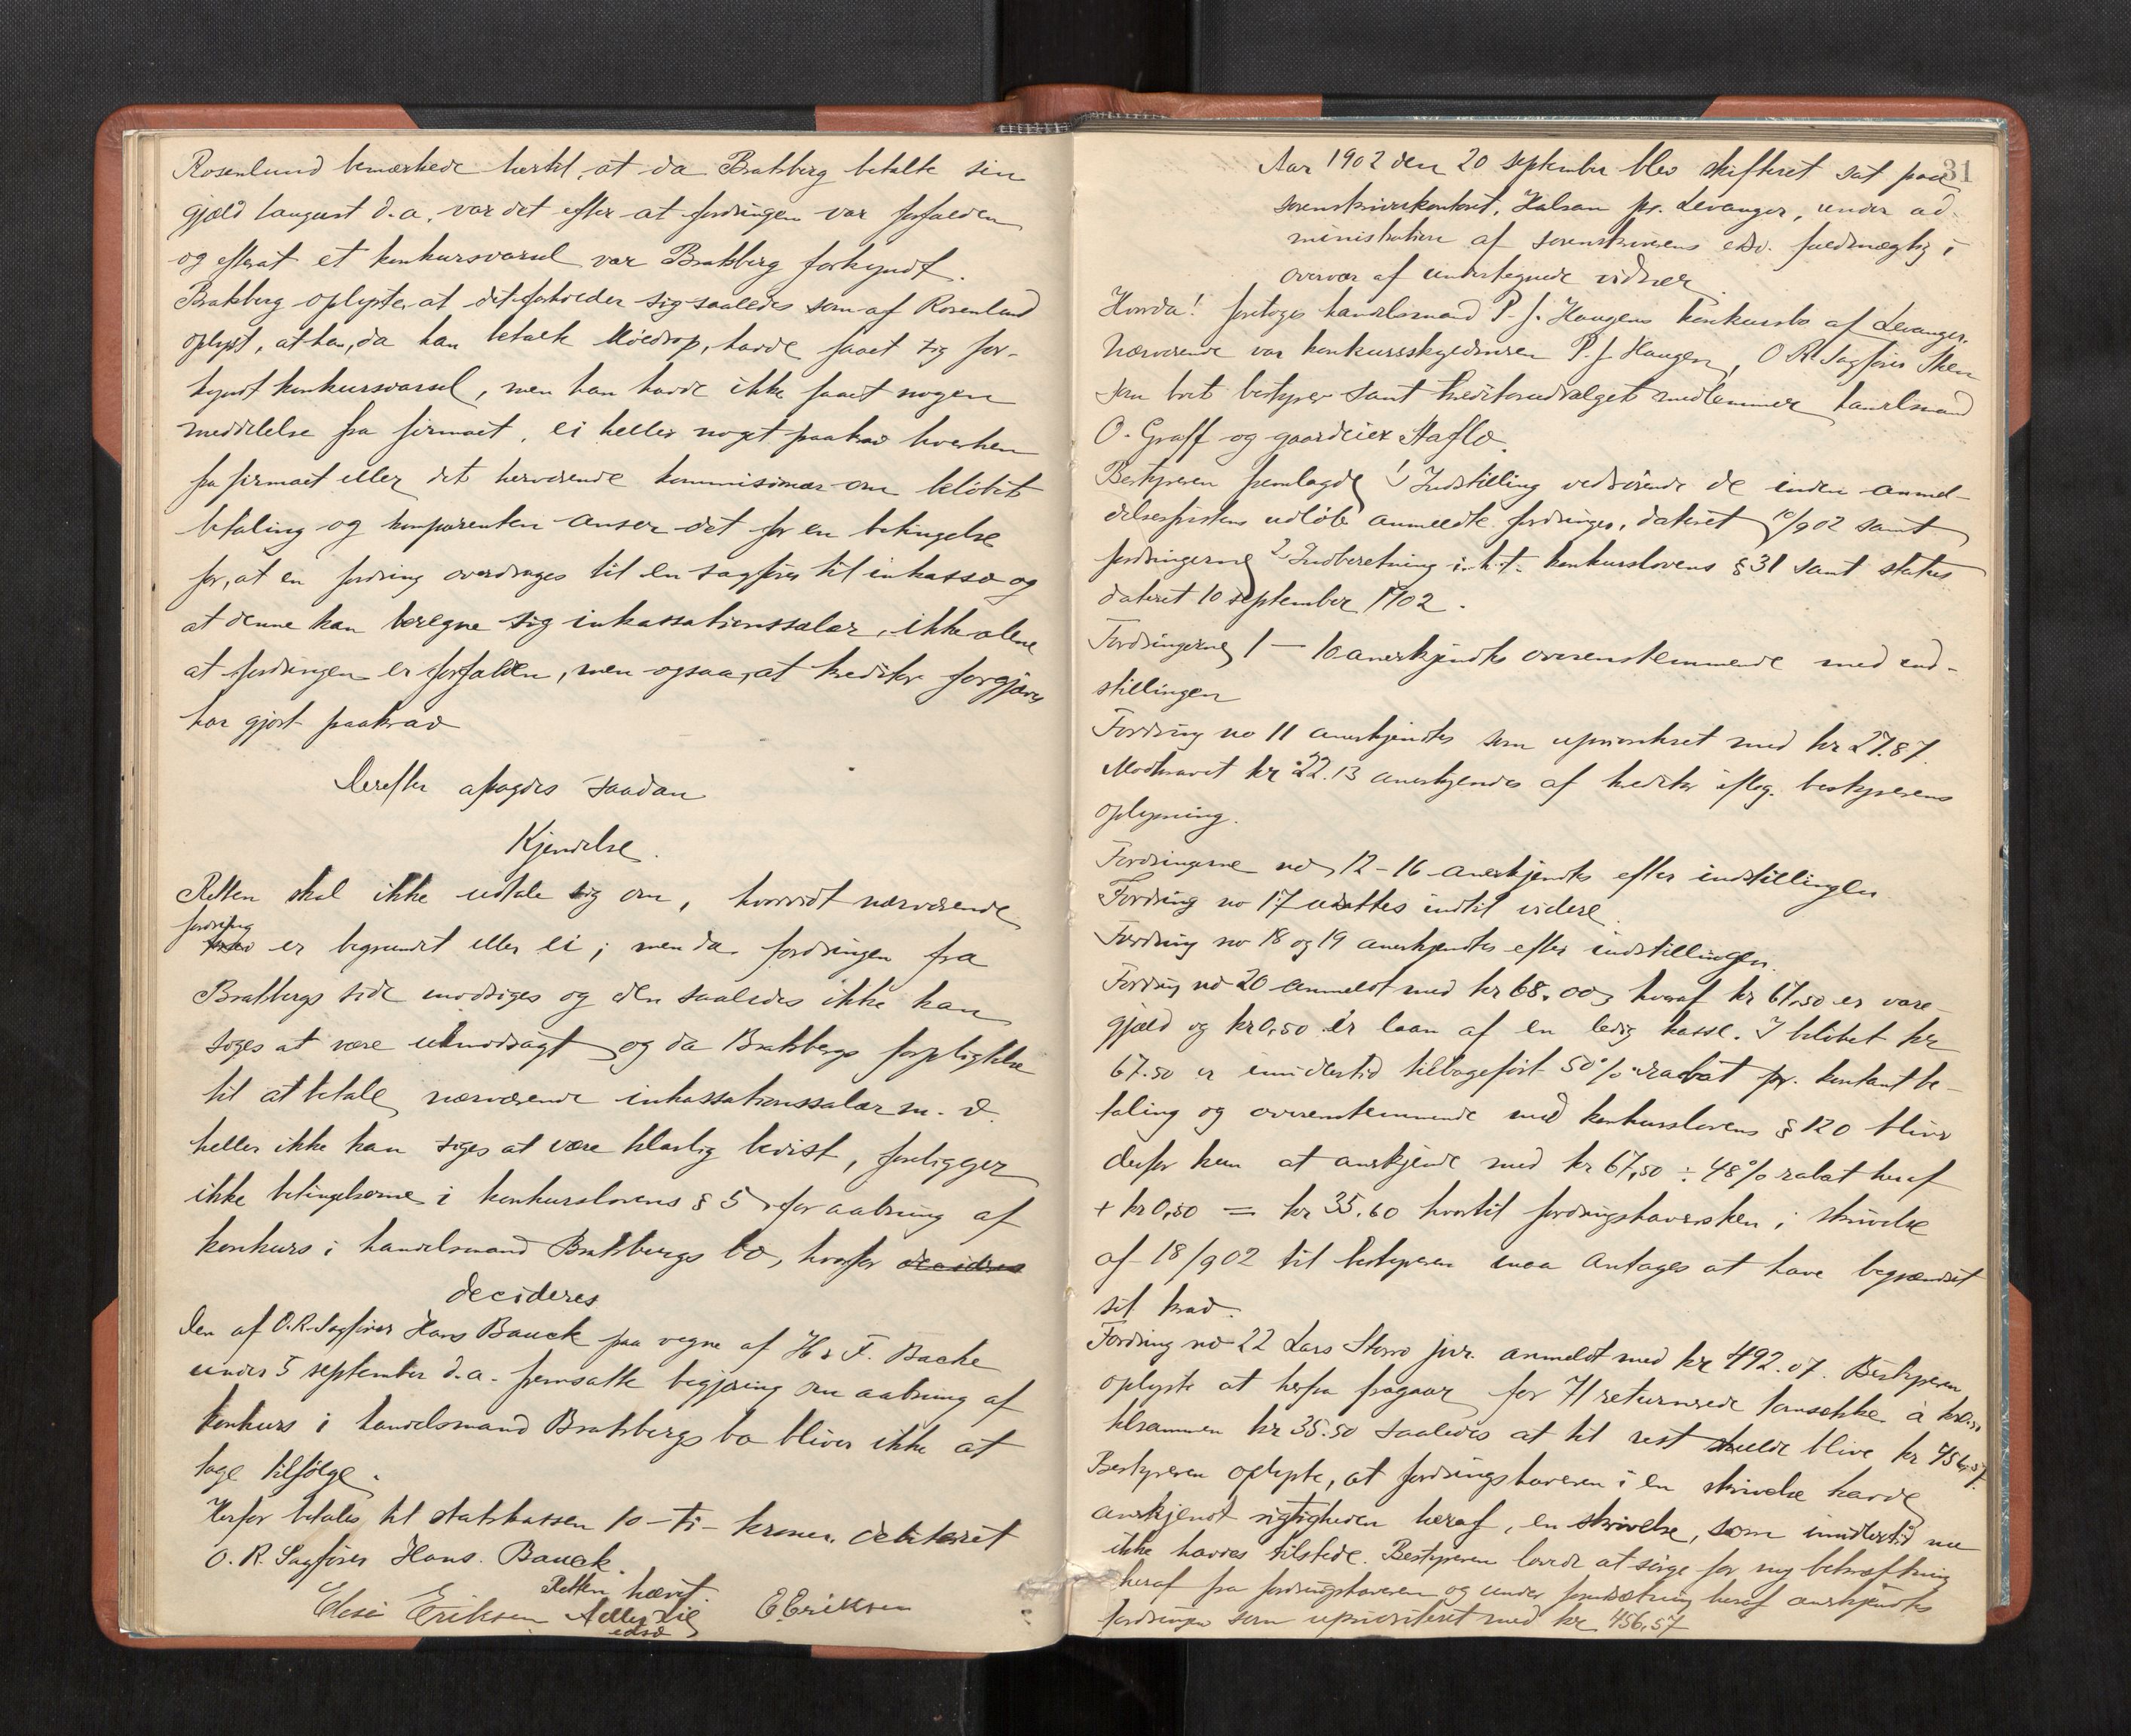 Rosenlund bemærkede hertil, at da Bratsberg betalte sin
gjæld i august d.a., var det efter at fordringen var forfalden
og efterat et konkursvarsel var Bratsberg forkyndt.
Bratsberg oplyste, at det forholder sig saaledes som af Rosenlund
oplyst, at han, da han betalte, havde faaet sig for-
kyndt konkursvarsel, men han havde ikke faaet nogen
meddelelse fra firmaet, ei heller noget paakrav hverken
fra firmaet eller det herværende kommissionær om beløbets
betaling og komparenten anser det for en betingelse
for, at en fordring overdrages til en sagfører til inkasso og
at denne kan beregne sig inkassationssalær, ikke alene
at fordringen er forfalden, men ogsaa, at kreditor forgjæves
har gjort paakrav
Derefter afsagdes saadan
Kjendelse.
Retten skal ikke udtale sig om, hvorvidt nærværende
fordring
krav er begrundet eller ei; men da fordringen fra
Bratsbergs side modsiges og den saaledes ikke kan
siges at være utmodsagt og da Bratsbergs forpligtelse
til at betale nærværende inkassationssalær m.v.
heller ikke kan siges at være klarlig bevist, foreligger
ikke betingelserne i konkurslovens § 5 for aabning af
konkurs i handelsmand Bratsbergs bo, hvorfor decideres
decideres
Den af O.R.Sagfører Hans Bauck paa vegne af H & F. Bache
under 5 september d.a. fremsatte begjæring om aabning af
konkurs i handelsmand Bratsbergs bo bliver ikke at
tage tilfølge.
Herfor betales til statskassen 10 – ti – kroner, debiteret
O.R. Sagfører Hans Bauck.
Retten hævet.
Elise Eriksen Adler Lie E. Eriksen
edsv
31
Aar 1902 den 20 september blev skifteret sat paa
sorenskriverkontoret, Halsan pr. Levanger, under ad-
ministration af sorenskriverens edsv. fuldmægtig i
overvær af undertegnede vidner.
Hvorda! foretoges handelsmand P. J. Haugens konkursbo af Levanger.
Nærværende var konkursskyldneren P. J. Haugen, O R Sagfører Sken
som boets bestyrer samt kreditorudvalgets medlemmer handelsmand
O. Graff og gaardeier Staflo.
Bestyreren fremlagde 1) Indstilling vedrørende de inden anmel-
delsesfristens udløb anmeldte fordringer, dateret 10/9 02 samt
fordringerne 2 Indberetning i h.t. konkurslovens § 31 samt status
dateret 10 september 1902.
Fordringerne 1 – 10 anerkjendtes overensstemmende med ind-
stillingen
Fordring no 11 anerkjendtes som uprioriteret med kr 27.87.
Modkravet kr 22.13 anerkjendes af kreditor iflg. bestyrerens
oplysning.
Fordringerne no 12 – 16 anerkjendtes efter indstillingen
Fordring no 17 udsattes indtil videre.
Fordring no 18 og 19 anerkjendtes efter indstillingen.
Fordring no 20 anmeldt med kr 68.00, hvoraf kr 67.50 er vare-
gjæld og kr 0,50 er laan af en ledig kasse. I beløbet kr
67.50 er imidlertid tilbageført 50 % rabat pr. kontant be-
taling og overensstemmende med konkurslovens § 120 bliver
derfor kun at anerkjende med kr 67,50 ÷ 48 % rabat heraf
+ kr 0,50 = kr 35.60 hvortil fordringshaversken i skrivelse
af 18/9 02 til bestyreren maa antages at have begrændset
sit krav.
Fordring no 22 Lars Storro jnr. anmeldt med kr 492.07. Bestyreren
oplyste at herfra fragaar for 71 returnerede tomsække à kr 0.50
tilsammen kr 35.50 saaledes at til rest skulde blive kr 456,57.
Bestyreren oplyste, at fordringshaveren i en skrivelse havde
anerkjendt rigtigheden heraf, en skrivelse, som imidlertid nu
ikke havdes tilstede. Bestyreren lovede at sørge for ny bekræftning
heraf fra fordringshaveren og under forudsætning heraf anerkjendtes
fordringen som uprioriteret med kr 456,57